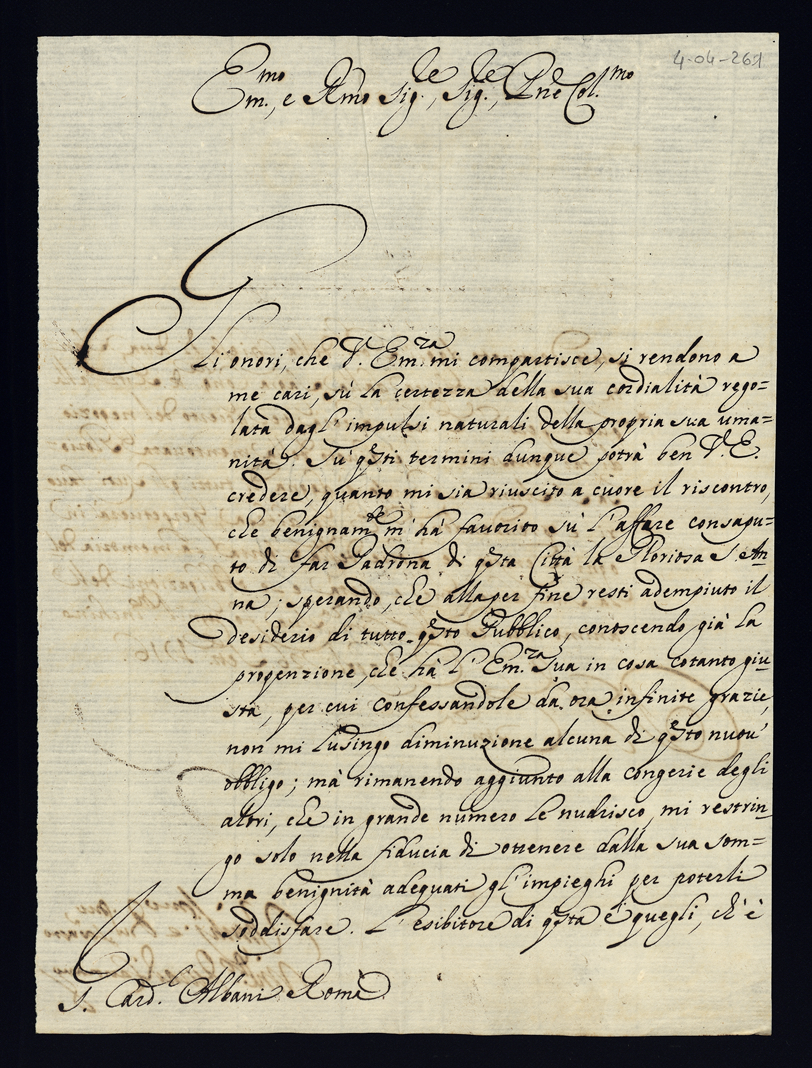 4-04-261
Em.mo, e Rmo Sig.re, Sig.re, Pne Col.mo
Gli onori, che V. Em.za mi compartisce, si rendono a
me cari, sù la certezza della sua cordialità rego=
lata dagl'impulsi naturali della propria sua uma=
nità. Su q̃sti termini dunque potrà ben V. E.
credere, quanto mi sia riuscito a cuore il riscontro,
che benignam.te m'hà favorito sù l'affare consapu=
to di far Padrona di q̃sta Città la Gloriosa S. An=
na; sperando, che alla per fine resti adempiuto il
desiderio di tutto q̃sto Pubblico, conoscendo già la
propenzione, che hà l'Em.za Sua in cosa cotanto giu=
sta, per cui confessandole da ora infinite grazie,
non mi lusingo diminuzione alcuna di q̃sto nuovo
obbligo; mà rimanendo aggiunto alla congerie degli
altri, che in grande numero le nudrisco, mi restrin=
go solo nella fiducia di ottenere dalla sua som=
ma benignità adequati gl'impieghi per poterli
soddisfare. L'esibitore di q̃sta è quegli, ch'è
S. Card.l Albani Roma